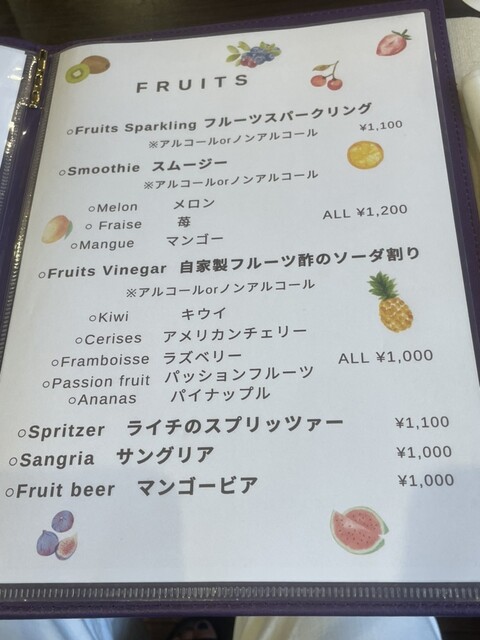 FRUITS
○Fruits Sparkling フルーツスパークリング
※アルコールorノンアルコール ¥1,100
○Smoothie スムージー
※アルコールorノンアルコール
○Melon メロン
○ Fraise 苺 ALL ¥1,200
○Mangue マンゴー
○Fruits Vinegar 自家製フルーツ酢のソーダ割り
※アルコールorノンアルコール
○Kiwi キウイ
○Cerises アメリカンチェリー
○Framboisse ラズベリー ALL ¥1,000
○Passion fruit パッションフルーツ
○Ananas パイナップル
○Spritzer ライチのスプリッツァー ¥1,100
○Sangria サングリア ¥1,000
○Fruit beer マンゴービア ¥1,000